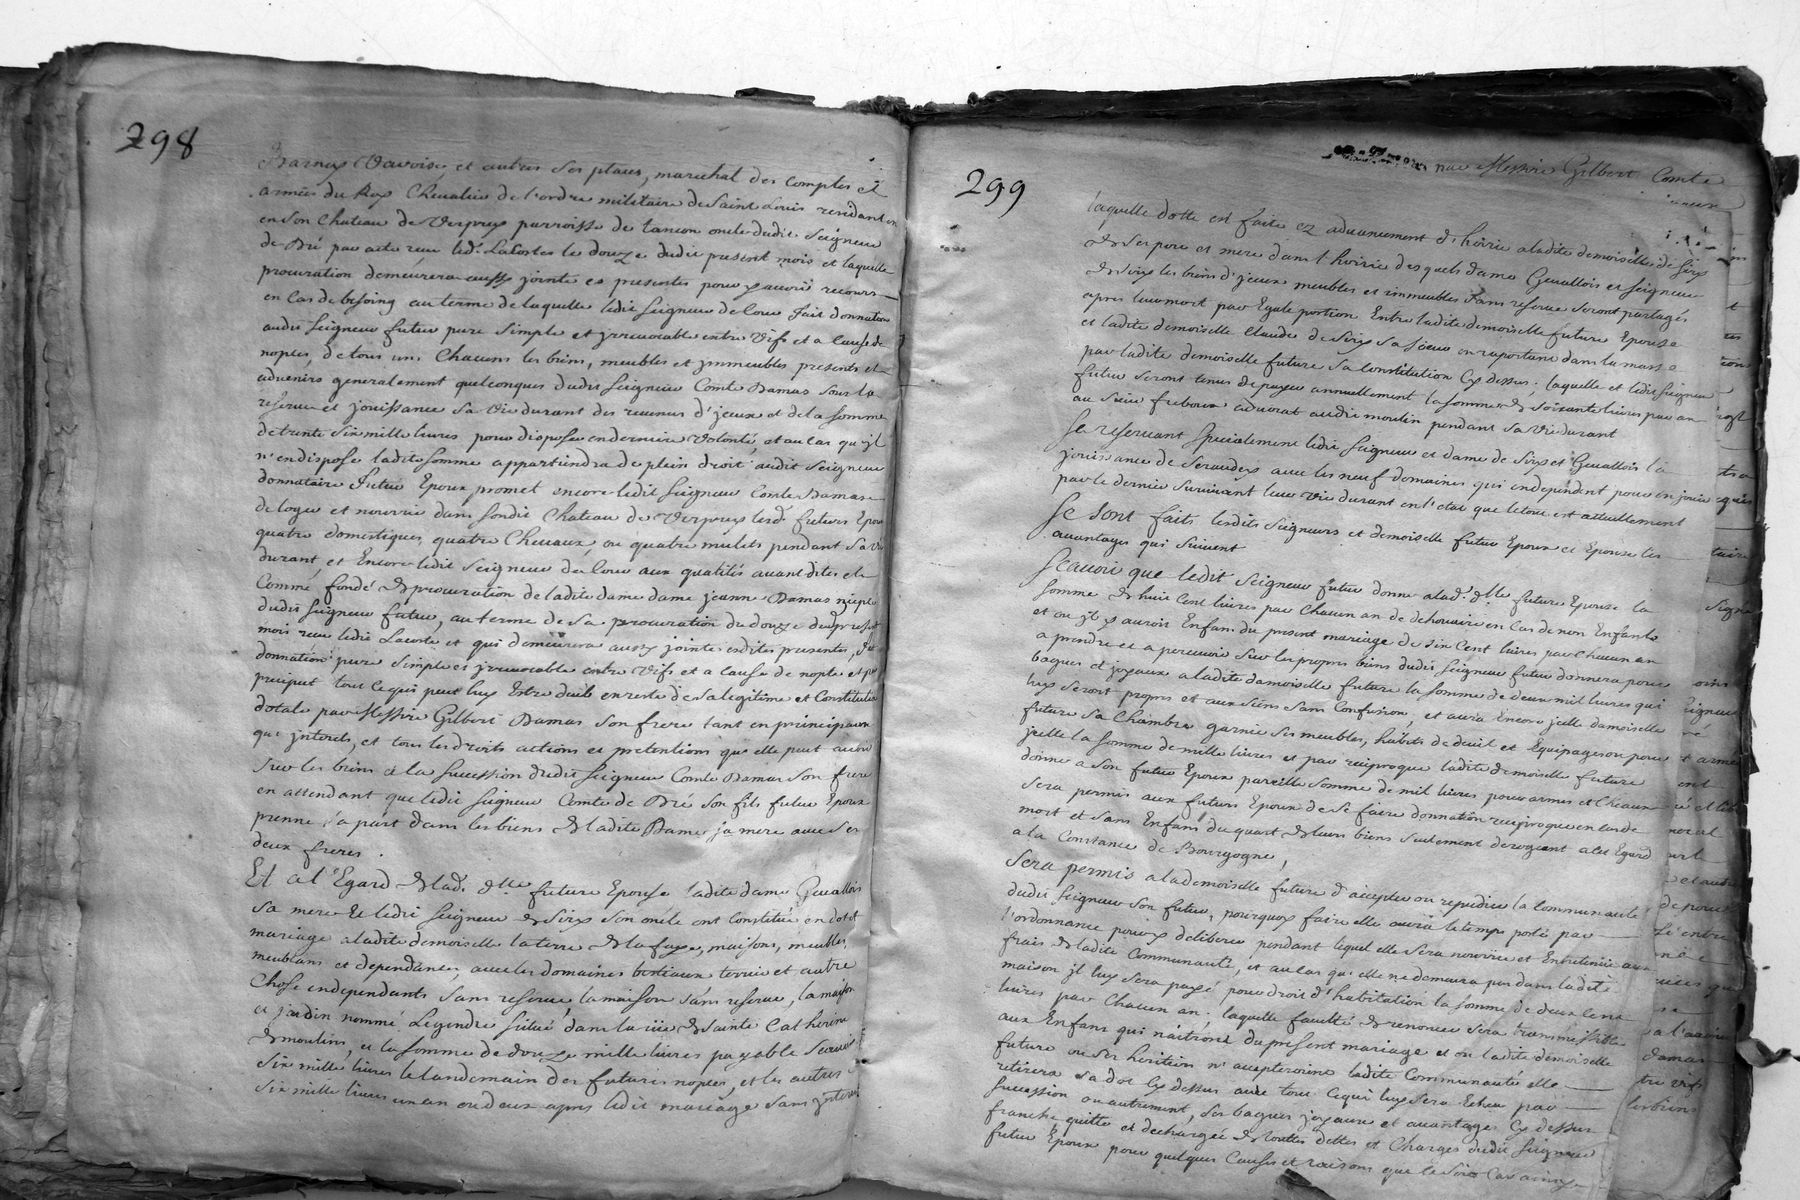 298
Barnay Vavoisy et autres ses places, marechal des comptes et
armées du Roy Chevalier de l'ordre militaire de Saint Louis residant en
en son Chateau de Verpres parroisse de tancon oncle dudit Seigneur
de Bré par acte reçu led. Lacortes le douze dudit present mois et laquelle
procuration demeurera aussy jointe es presentes pour y avoir recours
en Cas de besoing au terme de laquelle ledit Seigneur de loue fait donnation
audit Seigneur futur pure simple et yrrevocable entre Vifs et a Cause de
noples, de tous uns Chacuns les biens, meubles et ymmeubles presents et
advenirs generalement quelconques dudit Seigneur Comte Damas sous la
reserve et jouissance sa vie durant des revenus d'yceux et de la somme
de trente six mille livres pour disposer en derniere volonté, et au cas qu'jl
n'en dispose ladite somme appartiendra de plein droit audit Seigneur
donnataire futur Epoux promet encore ledit Seigneur Comte Damas
de loger et nourrir dans sondit Chateau de Verpreys lesd. futurs Epoux
quatre domestiques, quatre Chevaux, ou quatre mulets pendant sa vie
durant, et Encore ledit Seigneur de loue aux qualités avant dites et
Comme fondé de procuration de ladite dame dame jeanne Damas niepce
dudit Seigneur futur, au terme de sa procuration du douze du present
mois reçue ledit Lacoste et qui demeurera aussy jointe esdites presentes, fait
donnation pure simple et yrrevocable entre Vifs et a cause de nople et par
preciput tout ce qui peut luy Estre deub en reste de sa legitime et Constitution
dotale par Messire Gilbert Damas son frere tant en principaux
que ynterets, et tous les droits actions et pretentions que elle peut avoir
sur les biens et la succession dudit Seigneur Comte Damas son frere
en attendant que ledit Seigneur Comte de Bré son fils futur Epoux
prenne sa part dans les biens de ladite Dame sa mere avec ses
deux freres.
Et a l'Egard de lad. dlle future Epouse ladite dame Gevallois
sa mere et ledit Seigneur de Sirys son oncle ont Constitué en dot et
mariage a ladite demoiselle la terre de la faye, maisons, meubles,
meublans et dependances, avec les domaines bestiaux terrie et autre
Chose en dependants sans reserve, la maison sans reserve, la maison
et jardin nommé Legendre situé dans la rüe de Sainte Catherine
de moulins, et la somme de douze mille livres payable scavoir
Six mille livres le landemain des futures noples, et les autres
Six mille livres un an ou deux apres ledit mariage sans ynterest
299
par Messire Gilbert Comte
laquelle dotte est faite ez advancement d'hoirie a ladite demoiselle de Sirys
de ses pere et mere dans l'hoirie des quels dame Gevallois et Seigneur
de Sirys les biens d'yceux meubles et immeubles sans reserve seront partagés
apres leur mort par Egale portion Entre ladite demoiselle future Epouse
et ladite demoiselle Claude de Sirys sa soeur en raportant dans la masse
par ladite demoiselle future sa Constitution Cy dessus; laquelle et ledit Seigneur
futur seront tenus de payer annuellement la somme de soixante livres par an
au Sieur advocat audit moulin pendant sa vie durant
se reservant specialement ledit Seigneur et dame de Sirys et Gevallois la
jouissance de Seraudey avec les neuf domaines qui en dependent pour en jouir
par le dernier survivant leur vie durant en l'etat que le tout est actuellement
Se sont faits lesdits Seigneurs et demoiselle futur Epoux et Epouse les
avantages qui suivent
Scavoir que ledit Seigneur futur donne a lad. dlle future Epouse la
somme de huit Cent livres par Chacun an de dehouaire en Cas de non Enfants
et ou jl y auroit Enfans du present mariage de six Cent livres par Chacun an
a prendre et a percevoir sur les propres biens dudit Seigneur futur donnera pour
bagues et joyaux a ladite damoiselle future la somme de deux mil livres qui
luy seront propres et aux siens sans Confusion, et aura Encore jcelle damoiselle
future sa Chambre garnie ses meubles, habits de deuil et Equipages ou pour
jcelle la somme de mille livres et par reciproque ladite demoiselle future
donne a son futur Epoux pareille somme de mil livres pour armes et Chevaux
Sera permis aux futurs Epoux de se faire donnation reciproque en cas de
mort et sans Enfans du quart de leurs biens seulement derogeant a cet Egard
a la Constance de Bourgogne,
Sera permis a la demoiselle future d'accepter ou repudier la Communauté
dudit Seigneur son futur, pourquoy faire elle aura le temps porté par
l'ordonnance pour y deliberer pendant lequel elle sera nourrie et Entretenue aux
frais de ladite Communauté, et au cas qu'elle ne demeura pas dans ladite
maison jl luy sera payé pour droit d'habitation la somme de deux Cent
livres par Chacun an; laquelle faculté de renoncer sera transmissible
aux Enfans qui naitront du present mariage et ou ladite demoiselle
future ou ses heritiers n'accepteroint ladite Communauté elle
retirera sa dot Cy dessus avec tout ce qui luy sera Echu par
succession ou autrement, ses bagues joyaux et avantages Cy dessus
franche quitte et dechargée de touttes dettes et Charges dudit Seigneur
futur Epoux pour quelques Causes et raisons que le soit Cas ainsy